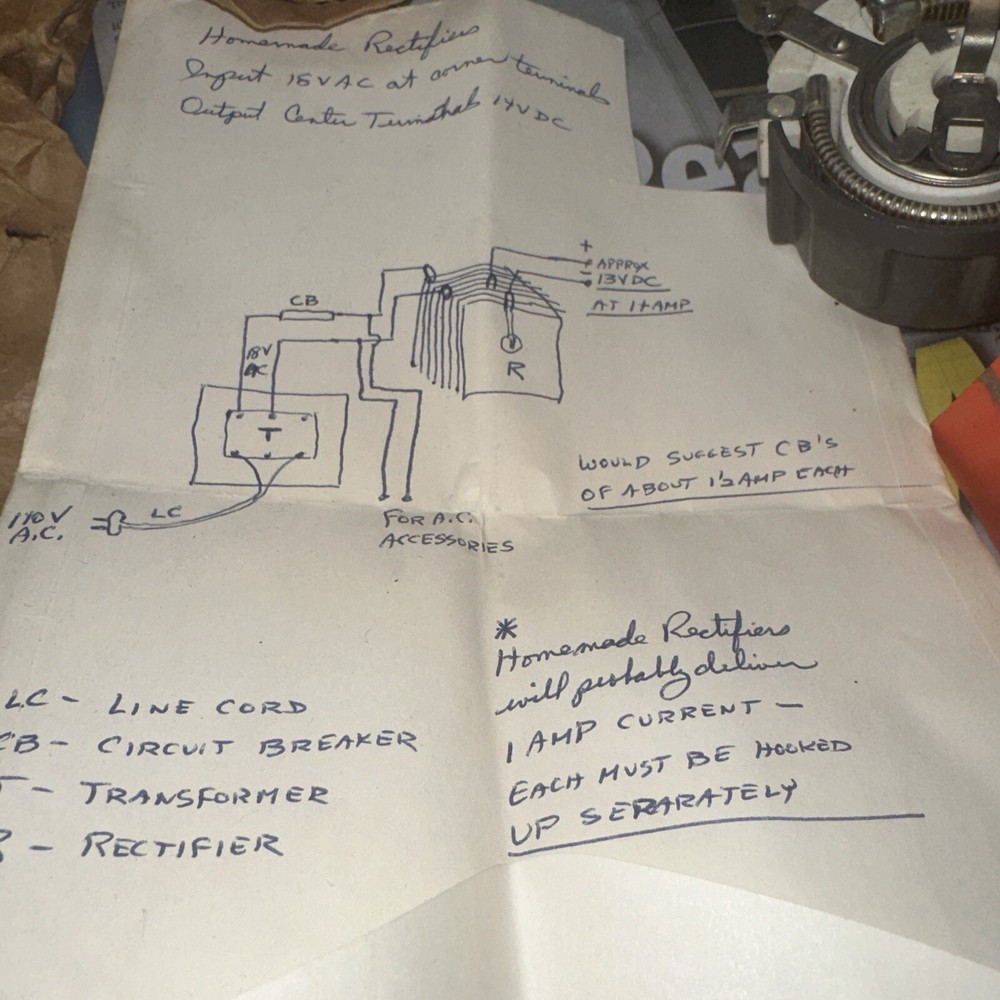 Homemade Rectifiers
Input 18 VAC at corner terminals
Output Center Terminals 14 VDC
+
APPROX
13 VDC
AT 1+AMP
CB
18V
AC
R
T
WOULD SUGGEST CB'S
OF ABOUT 1½ AMP EACH
110 V
A.C.
LC
FOR A.C.
ACCESSORIES
*
Homemade Rectifiers
will probably deliver
1 AMP CURRENT —
EACH MUST BE HOOKED
UP SEPARATELY
LC - LINE CORD
CB - CIRCUIT BREAKER
T - TRANSFORMER
R - RECTIFIER